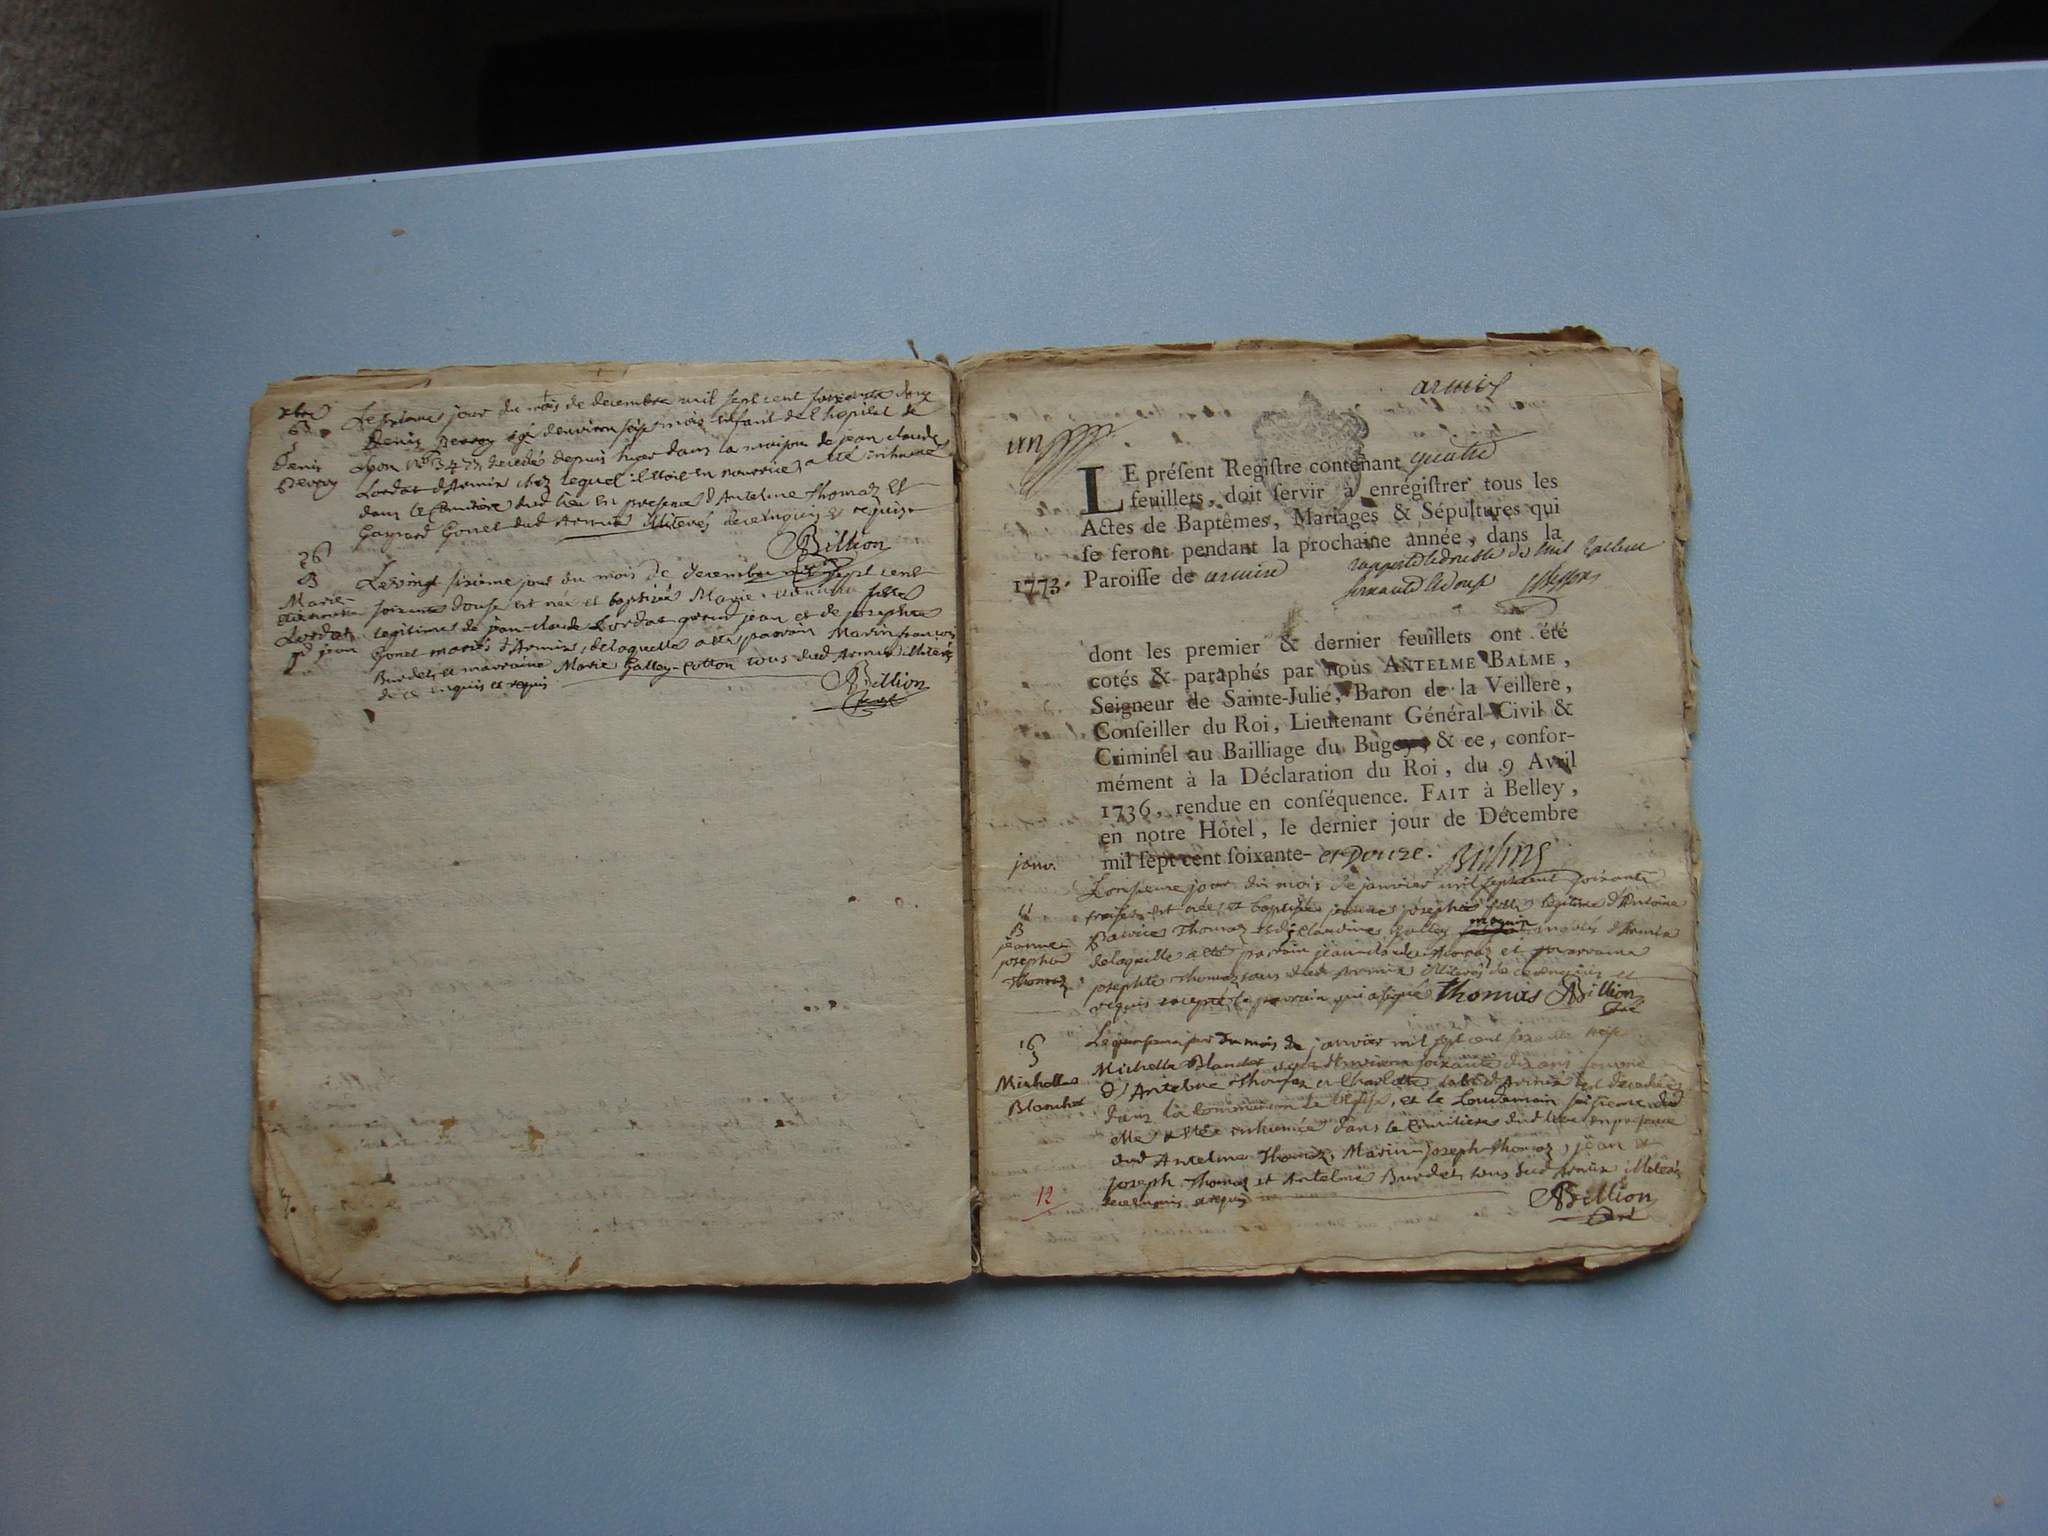 xbre
6
S
Denis
Perroy
Le sixieme jour du mois de decembre mil sept cent soixante douze
Denis Perroy agé d'environ sept mois enfant de l'hopital de
Lyon N° 3477 decedé depuis hier dans la maison de jean claude
Lordat d'Armix chez lequel il étoit en nourrice, a été inhumé
dans le Cimetiere dud lieu en presence d'Antelme thomaz et
Gaspard Gonet dud Armix illiterés de ce enquis et requis
Billion
26
B
Marie
Lordat
jean
Le vingt sixieme jour du mois de decembre mil sept cent
soixante douse est née et baptisée Marie fille
legitime de jean-claude Lordat jean et de josephte
Gonet mariés d'Armix, delaquelle a été parrain Marin françois
Burdet et marraine Marie Galley-Cotton tous dud Armix illiterés
de ce enquis et requis
Billion
Curé
7.
armix
un
LE préſent Regiſtre contenant quatre
feuillets, doit ſervir à enrégiſtrer tous les
Actes de Baptêmes, Mariages & Sépultures qui
ſe feront pendant la prochaine année, dans la
1773. Paroiſſe de armix
dont les premier & dernier feuillets ont été
cotés & paraphés par nous ANTELME BALME,
Seigneur de Sainte-Julie, Baron de la Veillere,
Conſeiller du Roi, Lieutenant Général Civil &
Criminel au Bailliage du Bugey, & ce, confor-
mément à la Déclaration du Roi, du 9 Avril
1736, rendue en conſéquence. FAIT à Belley,
en notre Hôtel, le dernier jour de Décembre
mil ſept cent ſoixante- et Douze.
janv.
11
B
jeanne
josephte
Thomaz
L'onsieme jour du mois de janvier mil sept cent soixante
treise est née et baptisée jeanne josephte fille legitime d'Antoine
Thomaz et de Claudine Galley moquin mariés d'Armix
delaquelle a été parrain jean-claude thomaz et marraine
josephte Thomaz tous dud Armix illiterés de ce enquis et
requis excepté le parrain qui a signé Thomas Billion
Curé
16
S
Michelle
Blanchet
Le quinsieme jour du mois de janvier mil sept cent soixante treise
Michelle Blanchet agée d'environ soixante dix ans femme
d'Antelme Thomaz dud Armix est decedée
dans la communion de l'eglise, et le lendemain seisieme dud
elle a été inhumée dans le Cimitiere dud lieu en presence
dud Antelme Thomaz, Marin-joseph Thomaz, jean
joseph Thomaz et Antelme Burdet tous dud Armix illiterés
de ce enquis et requis
12
Billion
Curé